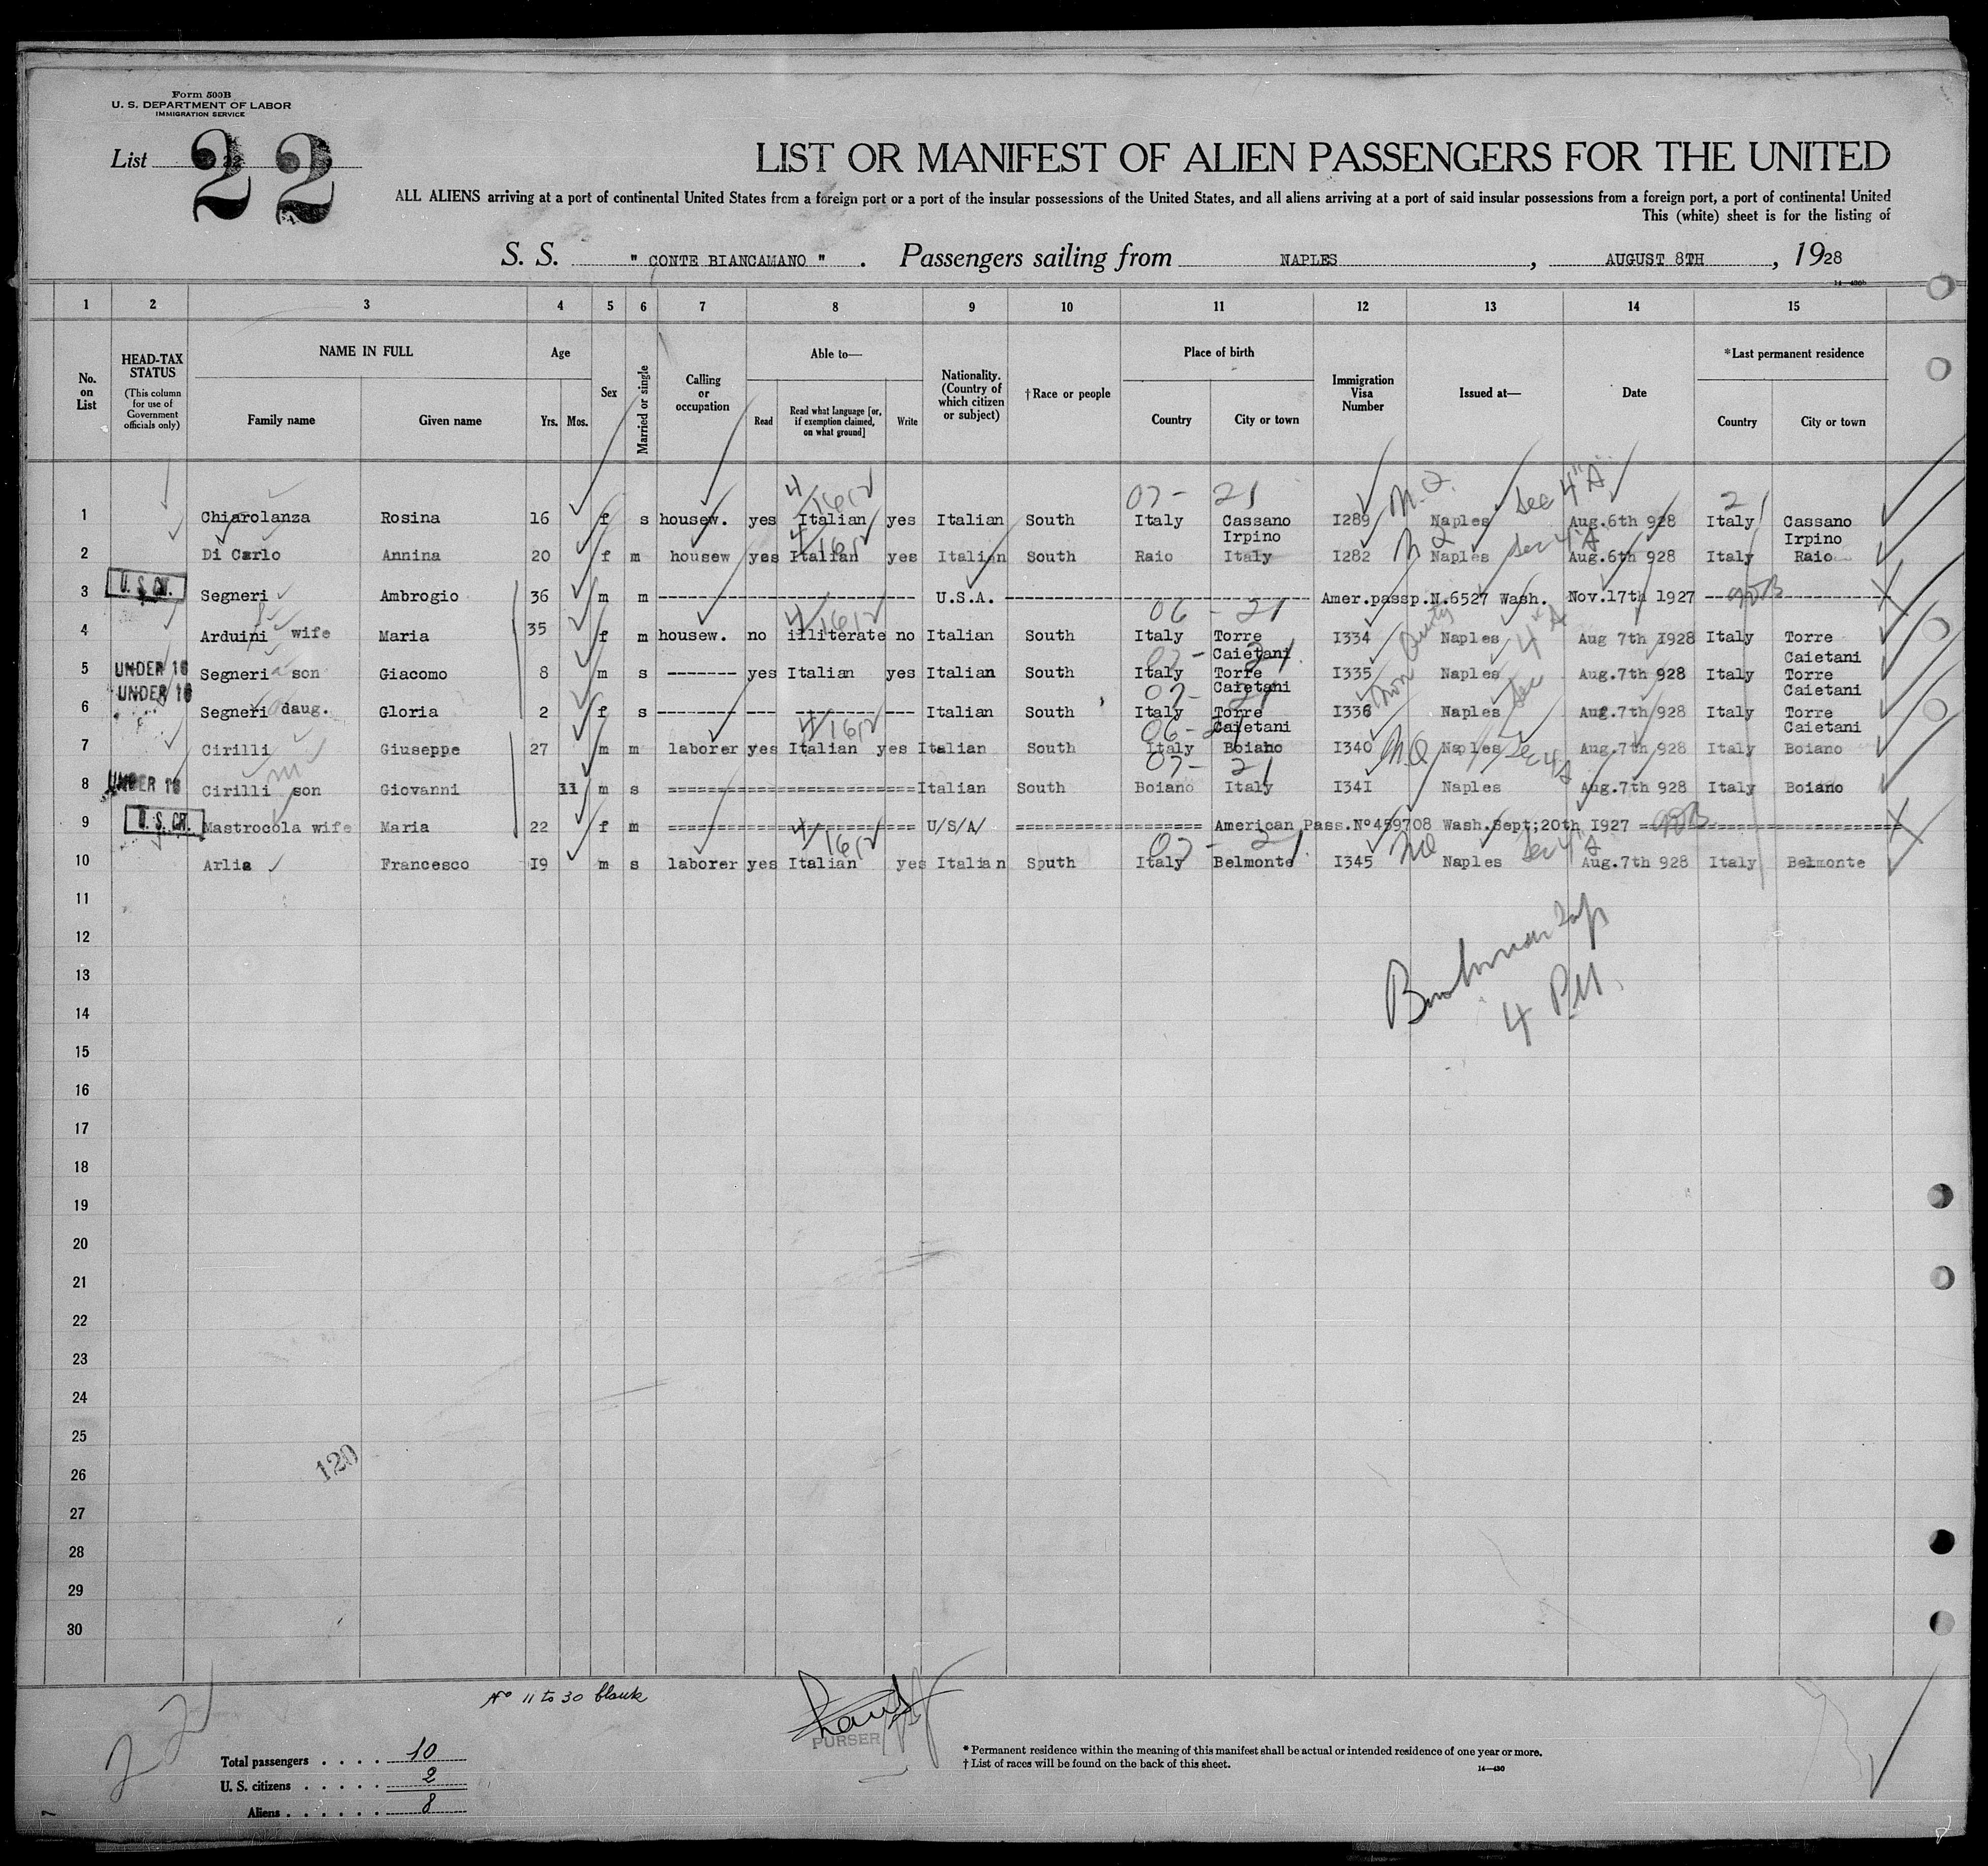 Form 500B
U. S. DEPARTMENT OF LABOR
IMMIGRATION SERVICE
List 22
22
LIST OR MANIFEST OF ALIEN PASSENGERS FOR THE UNITED
ALL ALIENS arriving at a port of continental United States from a foreign port or a port of the insular possessions of the United States, and all aliens arriving at a port of said insular possessions from a foreign port, a port of continental United
This (white) sheet is for the listing of
S. S. " CONTE BIANCAMANO " . Passengers sailing from NAPLES , AUGUST 8TH , 1928
14—430b
1 2 3 4 5 6 7 8 9 10 11 12 13 14 15
No. on List
HEAD-TAX STATUS
(This column for use of Government officials only)
NAME IN FULL
Family name Given name
Age
Yrs. Mos.
Sex
Married or single
Calling or occupation
Able to—
Read
Read what language [or, if exemption claimed, on what ground]
Write
Nationality. (Country of which citizen or subject)
† Race or people
Place of birth
Country City or town
Immigration Visa Number
Issued at—
Date
*Last permanent residence
Country City or town
07- 21 M.Q. Sec 4 "A" 21
1 Chiarolanza Rosina 16 f s housew. yes Italian yes Italian South Italy Cassano Irpino I289 Naples Aug.6th 928 Italy Cassano Irpino
2 Di Carlo Annina 20 f m housew yes Italian yes Italian South Raio Italy I282 Naples Aug.6th 928 Italy Raio
U. S. CIT.
3 Segneri Ambrogio 36 m m U.S.A. Amer.passp.N.6527 Wash. Nov.17th 1927
06 - 21
4 Arduini wife Maria 35 f m housew. no illiterate no Italian South Italy Torre Caietani I334 Naples Aug 7th I928 Italy Torre Caietani
UNDER 16
5 Segneri son Giacomo 8 m s yes Italian yes Italian South Italy Torre Caietani I335 Naples Aug.7th 928 Italy Torre Caietani
UNDER 16
6 Segneri daug. Gloria 2 f s Italian South Italy Torre Caietani I336 Naples Aug.7th 928 Italy Torre Caietani
7 Cirilli Giuseppe 27 m m laborer yes Italian yes Italian South Italy Boiano I340 Naples Aug.7th 928 Italy Boiano
07- 21
UNDER 16
8 Cirilli son Giovanni 11 m s Italian South Boiano Italy I34I Naples Aug.7th 928 Italy Boiano
U. S. CIT.
9 Mastrocola wife Maria 22 f m U/S/A/ American Pass.Nº459708 Wash.Sept;20th I927
10 Arlia Francesco I9 m s laborer yes Italian yes Italian South Italy Belmonte I345 Naples Aug.7th 928 Italy Belmonte
11
12
13
4 P.M.
14
15
16
17
18
19
20
21
22
23
24
25
120
26
27
28
29
30
Nº 11 to 30 blank
22
PURSER
Total passengers . . . . 10
U. S. citizens . . . . . 2
Aliens . . . . . . 8
* Permanent residence within the meaning of this manifest shall be actual or intended residence of one year or more.
† List of races will be found on the back of this sheet.
14—430